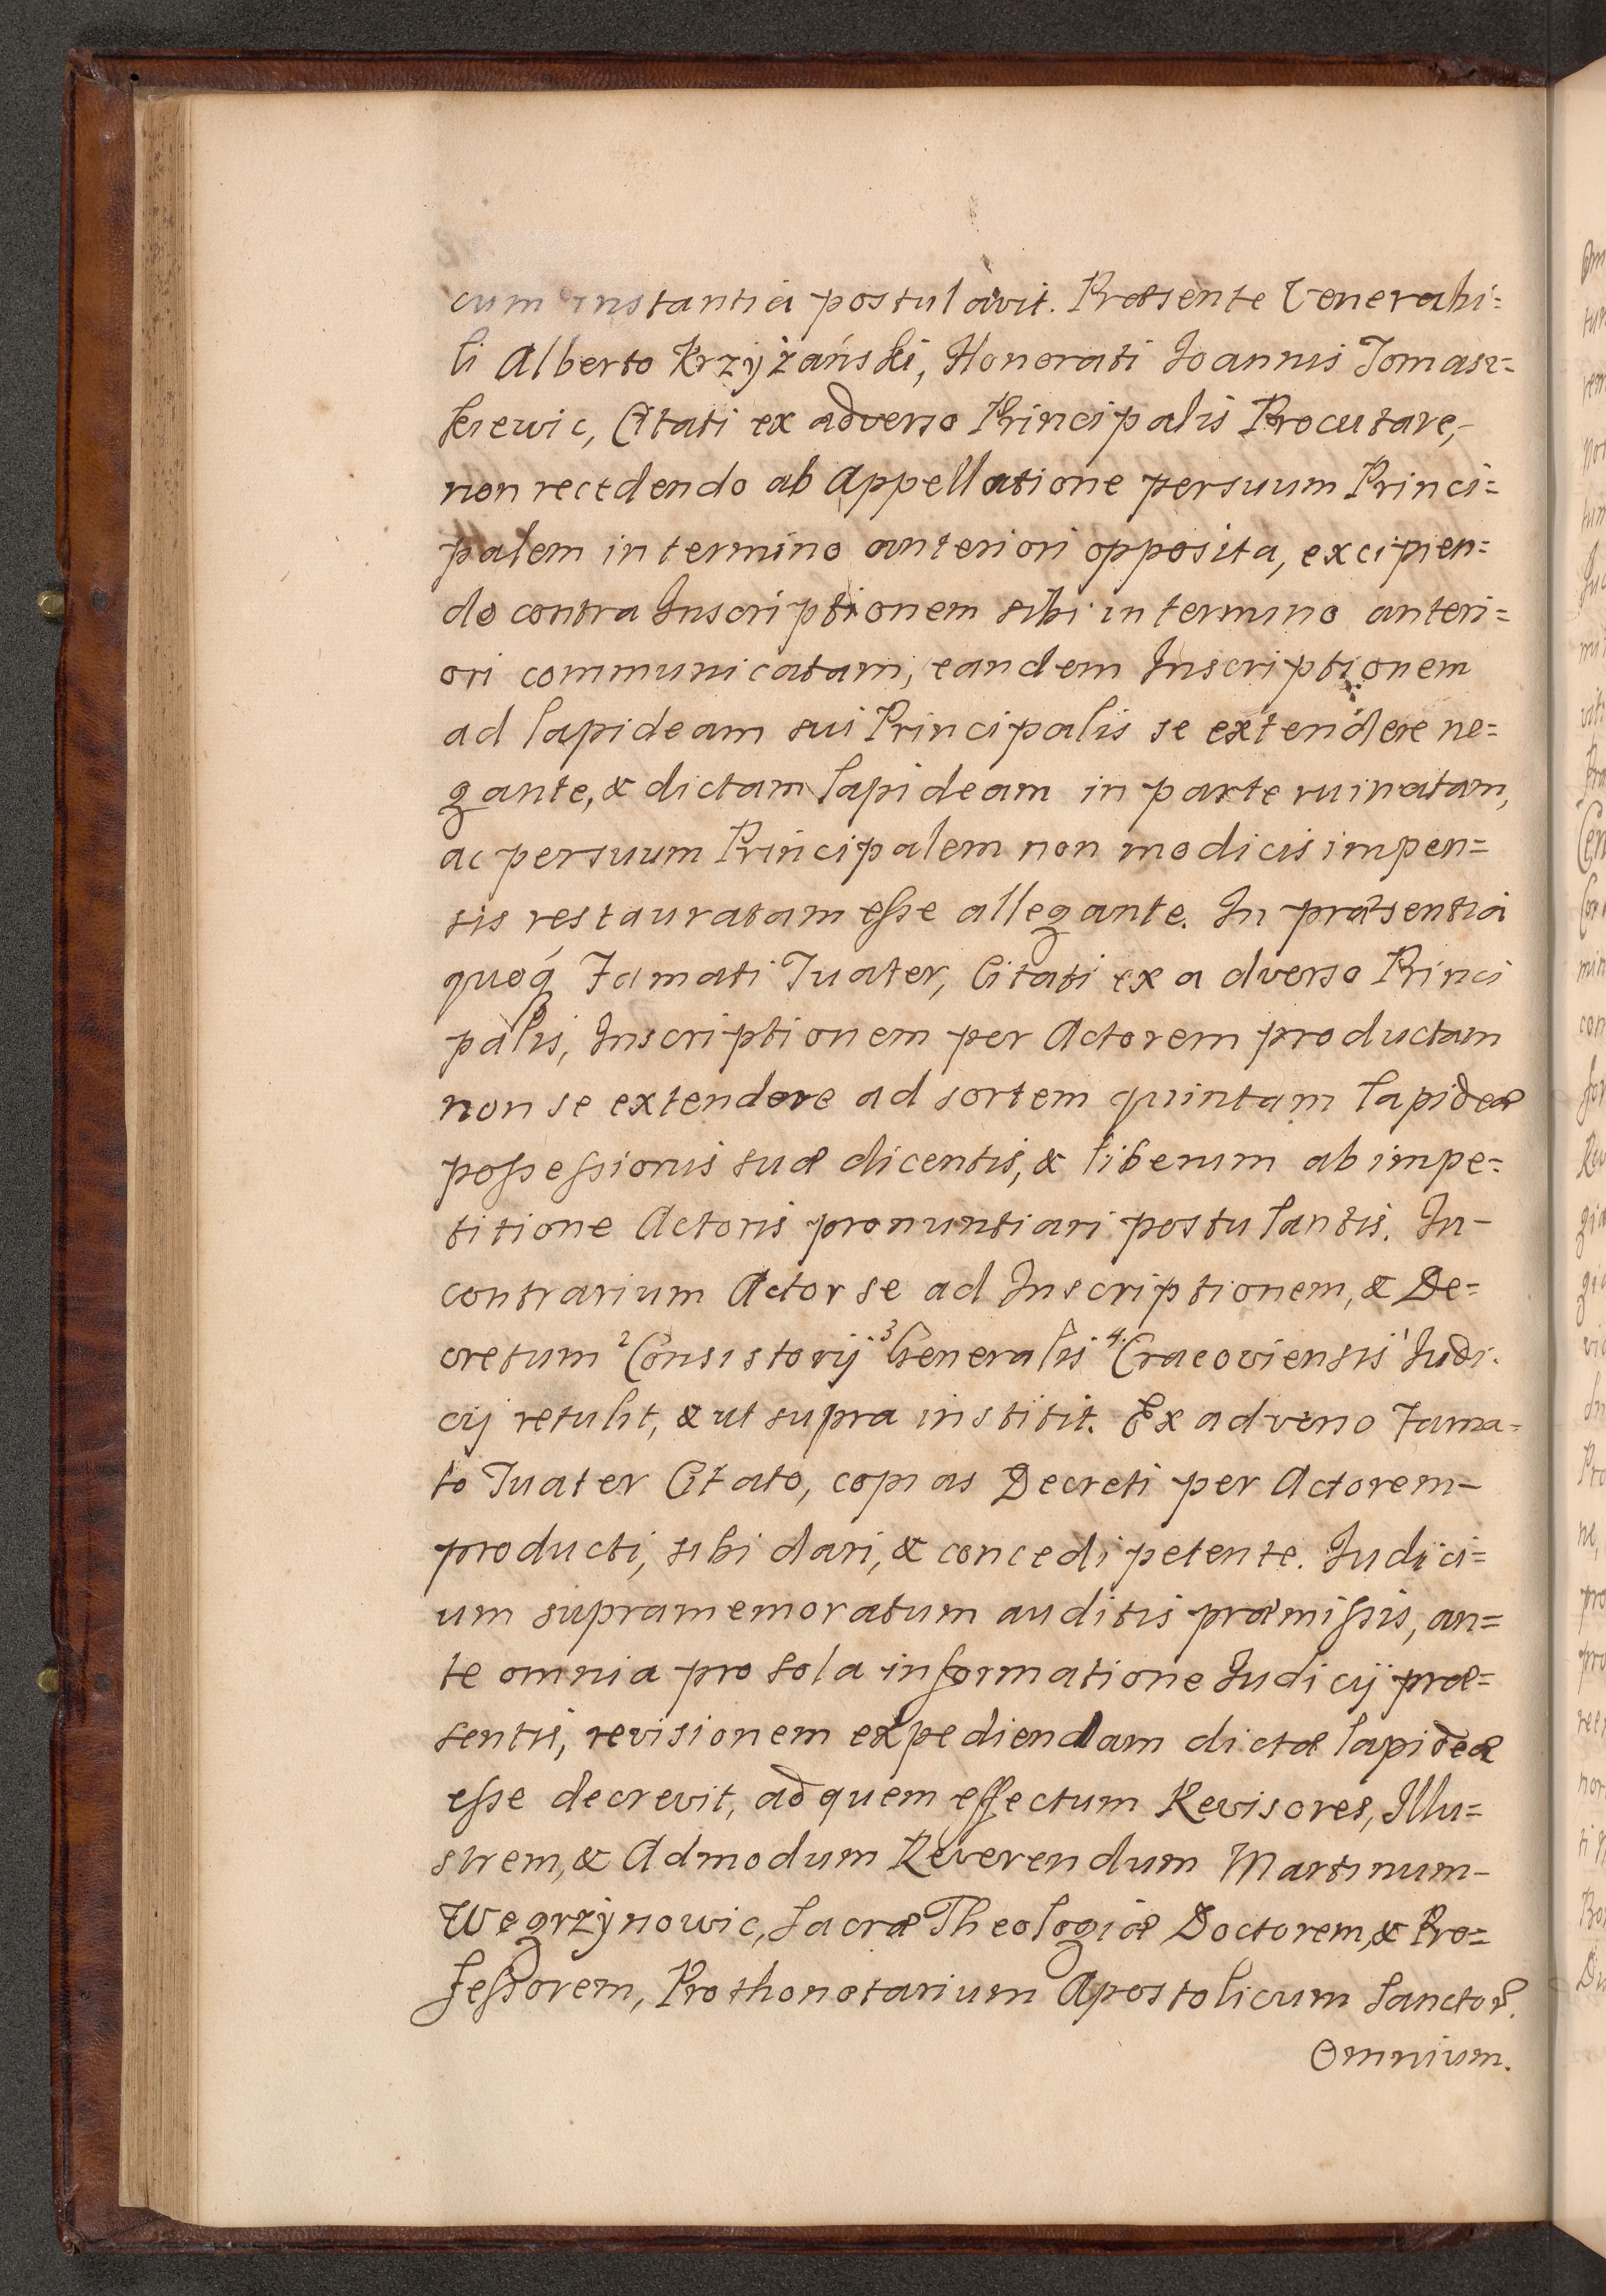 cum instantia postulavit. Præsente Venerabi=
li Alberto Krzyżański, Honorati Joannis Tomasz=
kiewic, Citati ex adverso Principalis Procutare,-
non recedendo ab Appellatione persuum Princi=
palem in termino anteriori opposita, excipien=
do contra Inscriptionem sibi in termino anteri=
ori communicatam, eandem Inscriptionem
ad lapideam sui Principalis se extendere ne=
gante, & dictam lapideam in parte ruinatam,
ac persuum Principalem non modicis impen=
sis restauratam esse allegante. In præsentia
quoq Famati Tuater, Citati ex adverso Princi
palis, Inscriptionem per Actorem productam
non se extendere ad sortem quintam lapideæ
possessionis suæ dicentis, & liberum ab impe=
titione Actoris pronuntiari postulantis. In-
contrarium Actor se ad Inscriptionem, & De=
cretum ²Consistorij ³Generalis ⁴Cracoviensis ¹Iudi.
cij retulit, & ut supra institit. Ex adverso Fama=
to Tuater Citato, copias Decreti per Actorem-
producti, sibi dari, & concedi petente. Iudici=
um supramemoratum auditis præmissis, an=
te omnia pro sola informatione Iudicij præ=
sentis, revisionem expediendam dictæ lapideæ
esse decrevit, ad quem effectum Revisores, Illu=
strem, & Admodum Reverendum Martinum-
Wegrzynowic, Sacræ Theologiæ Doctorem, & Pro=
fessorem, Prothonotarium Apostolicum Sanctor.
Omnium.